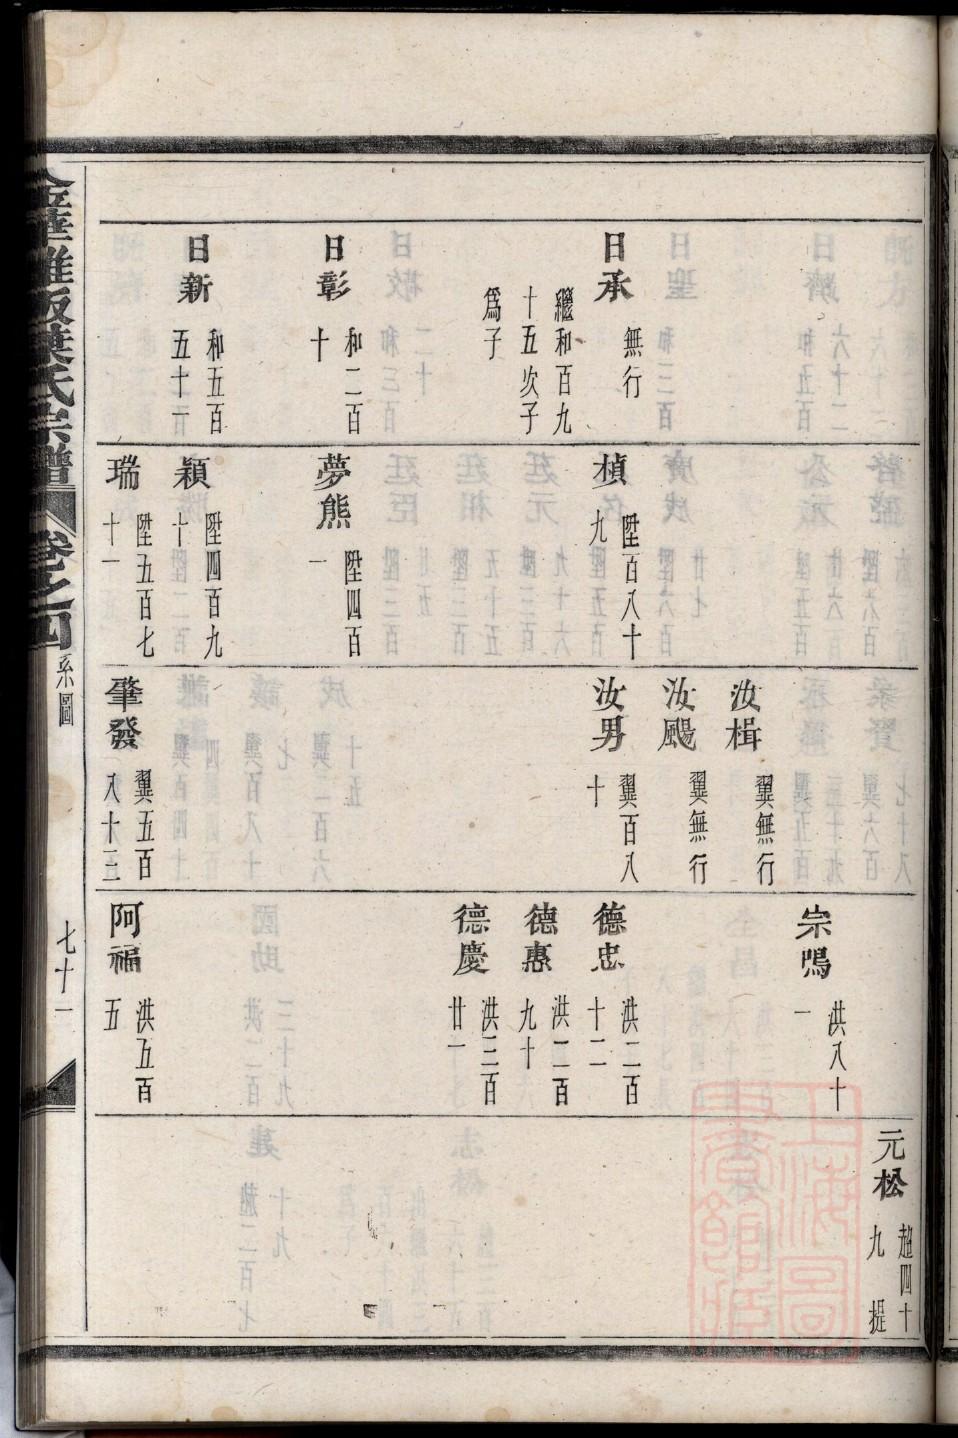 日承
無行
繼和百九
十五次子
為子
日彰
和二百
十
日新
和五百
五十一
楨
陞百八十
九
夢熊
陞四百
一
穎
陞四百九
十
瑞
陞五百七
十一
汝楫
翼無行
汝颺
翼無行
汝男
翼百八
十
肇發
翼五百
八十三
宗鳴
洪八十
一
德忠
洪二百
十二
德惠
洪二百
九十
德慶
洪三百
廿一
阿福
洪五百
五
元松
趙四十
九 提
華雅畈葉氏宗譜 卷之四 系圖 七十一
上海圖書館藏